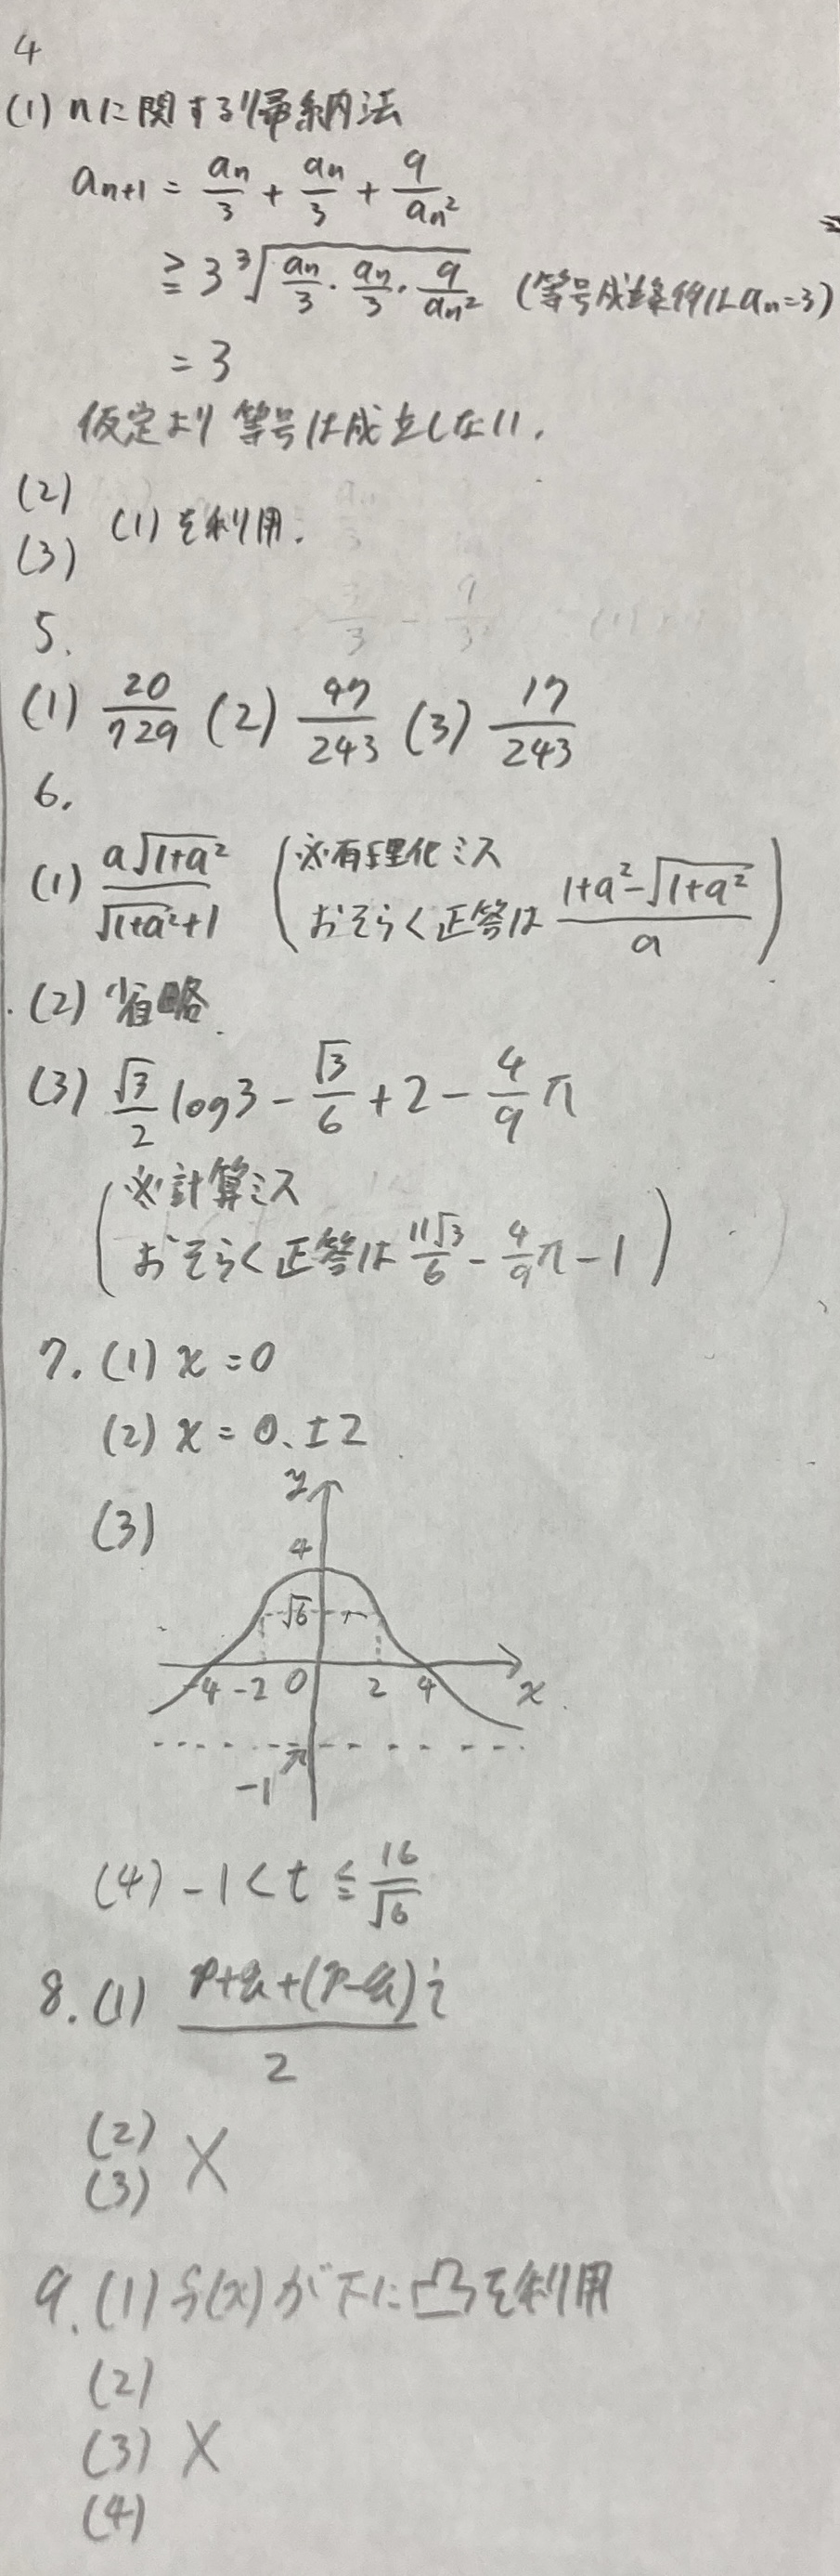 4
(1) nに関する帰納法
an+1 = an/3 + an/3 + 9/an²
≧ 3 ³√(an/3 · an/3 · 9/an²) (等号成立条件は an=3)
= 3
仮定より 等号は成立しない.
(2)
(3) (1)を利用.
5.
(1) 20/729 (2) 97/243 (3) 17/243
6.
(1) a√(1+a²)/(√(1+a²)+1) (※有理化ミス
おそらく正答は (1+a²-√(1+a²))/a)
(2) 省略
(3) √3/2 log3 - √3/6 + 2 - 4/9 π
(※計算ミス
おそらく正答は 11√3/6 - 4/9 π - 1)
7. (1) x = 0
(2) x = 0、±2
(3)
y
4
√6
-4 -2 0 2 4 x
-1
(4) -1 < t ≦ 16/√6
8. (1) (p+q+(p-q)i)/2
(2)
(3) ×
9. (1) f(x)が下に凸を利用
(2)
(3) ×
(4)